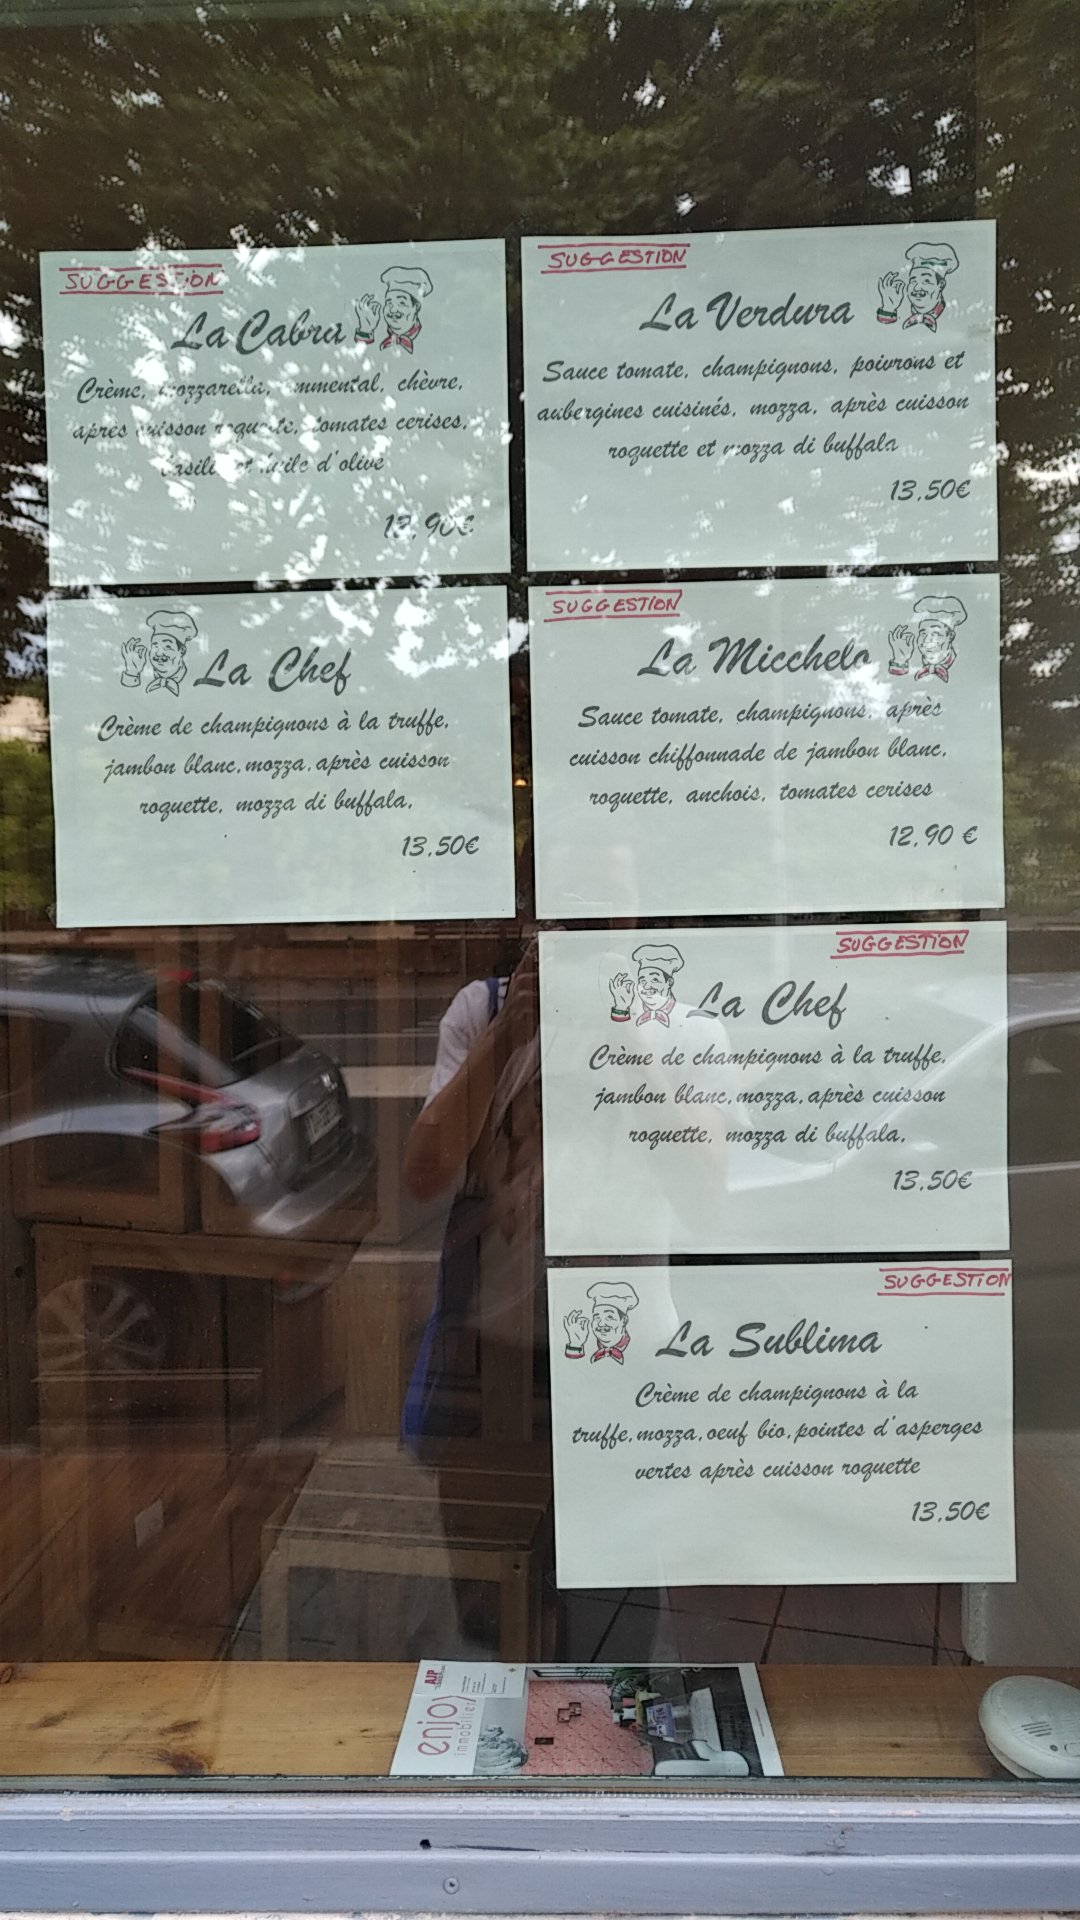 SUGGESTION
La Cabra
Crème, mozzarella, emmental, chèvre,
après cuisson roquette, tomates cerises,
basilic et huile d'olive
SUGGESTION
La Verdura
Sauce tomate, champignons, poivrons et
aubergines cuisinés, mozza, après cuisson
roquette et mozza di buffala
13,50€
La Chef
Crème de champignons à la truffe,
jambon blanc, mozza, après cuisson
roquette, mozza di buffala,
13,50€
SUGGESTION
La Micchelo
Sauce tomate, champignons, après
cuisson chiffonnade de jambon blanc,
roquette, anchois, tomates cerises
12,90 €
SUGGESTION
La Chef
Crème de champignons à la truffe,
jambon blanc, mozza, après cuisson
roquette, mozza di buffala,
13,50€
SUGGESTION
La Sublima
Crème de champignons à la
truffe, mozza, oeuf bio, pointes d'asperges
vertes après cuisson roquette
13,50€
AJP
enjoy
immobilier